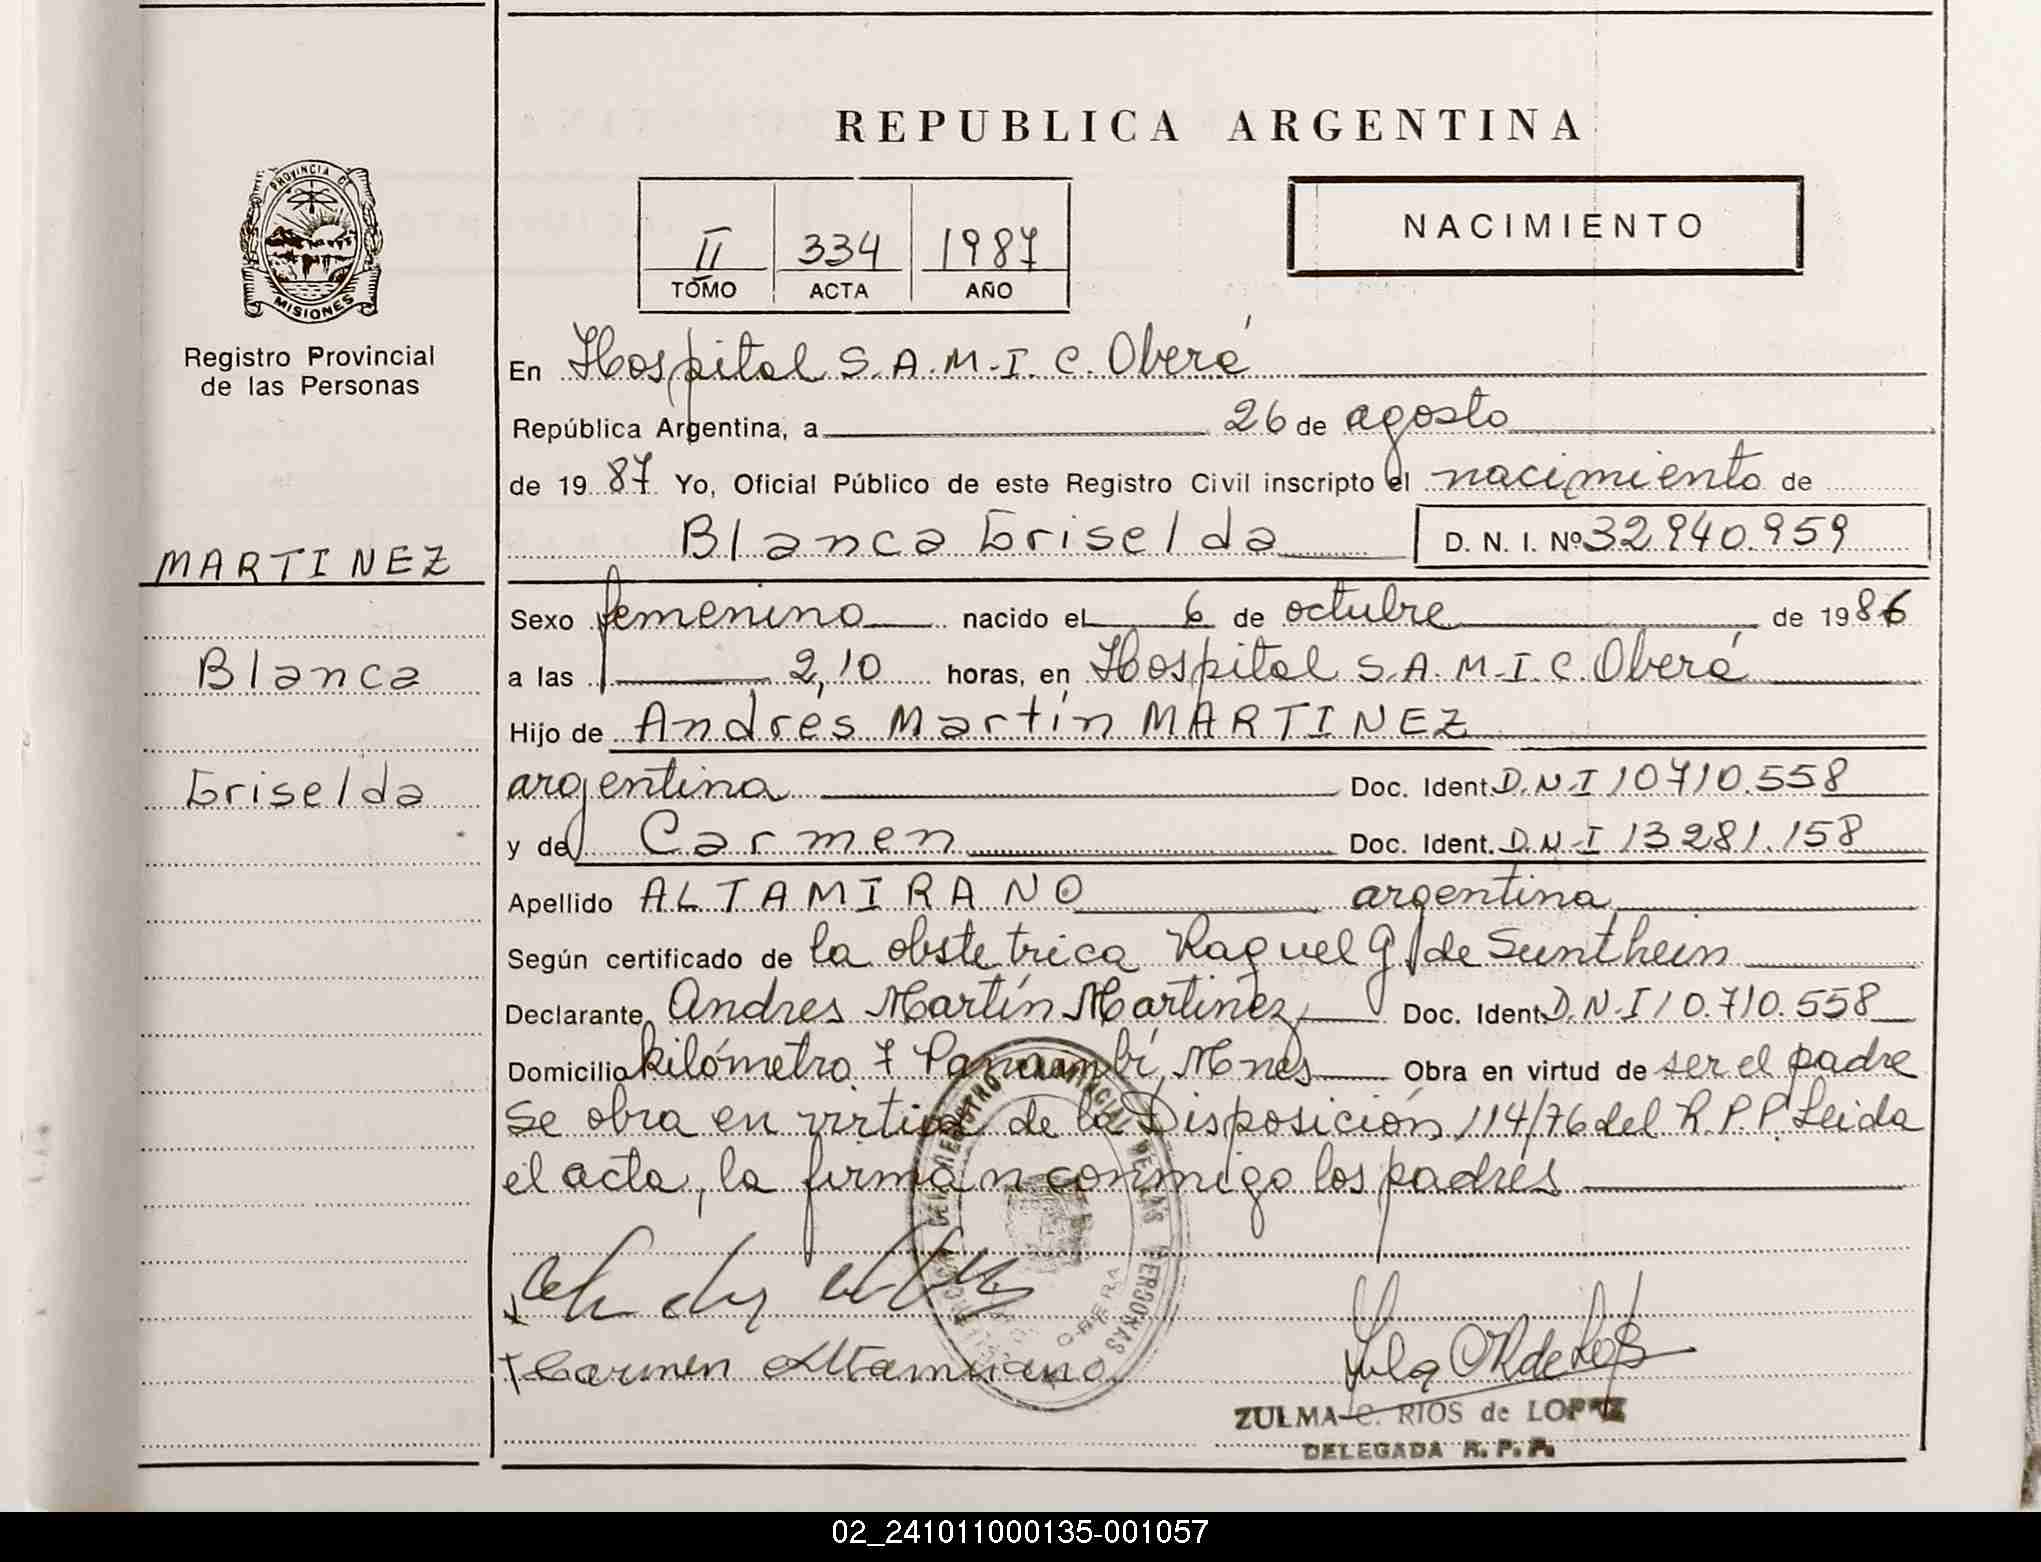 REPUBLICA ARGENTINA
PROVINCIA DE
MISIONES
Registro Provincial
de las Personas
II 334 1987
TOMO ACTA AÑO
NACIMIENTO
En Hospital S.A.M.I.C. Oberá
República Argentina, a 26 de agosto
de 19 87 Yo, Oficial Público de este Registro Civil inscripto el nacimiento de
Blanca Griselda D. N. I. Nº 32940.959
MARTINEZ
Blanca
Griselda
Sexo femenino nacido el 6 de octubre de 1986
a las 2,10 horas, en Hospital S.A.M.I.C. Oberá
Hijo de Andrés Martín MARTINEZ
argentina Doc. Ident. D.N.I 10710.558
y de Carmen Doc. Ident. D.N.I 13281.158
Apellido ALTAMIRANO argentina
Según certificado de la obstetrica Raquel G. de Sunthein
Declarante Andres Martín Martinez Doc. Ident. D.N.I 10.710.558
Domicilio kilómetro 7 Panambí, Mnes Obra en virtud de ser el padre
Se obra en virtud de la Disposición 114/76 del R.P.P. Leida
el acta, la firman conmigo los padres
Carmen Altamirano
ZULMA C. RIOS de LOPEZ
DELEGADA R. P. P.
OBERA
02_241011000135-001057